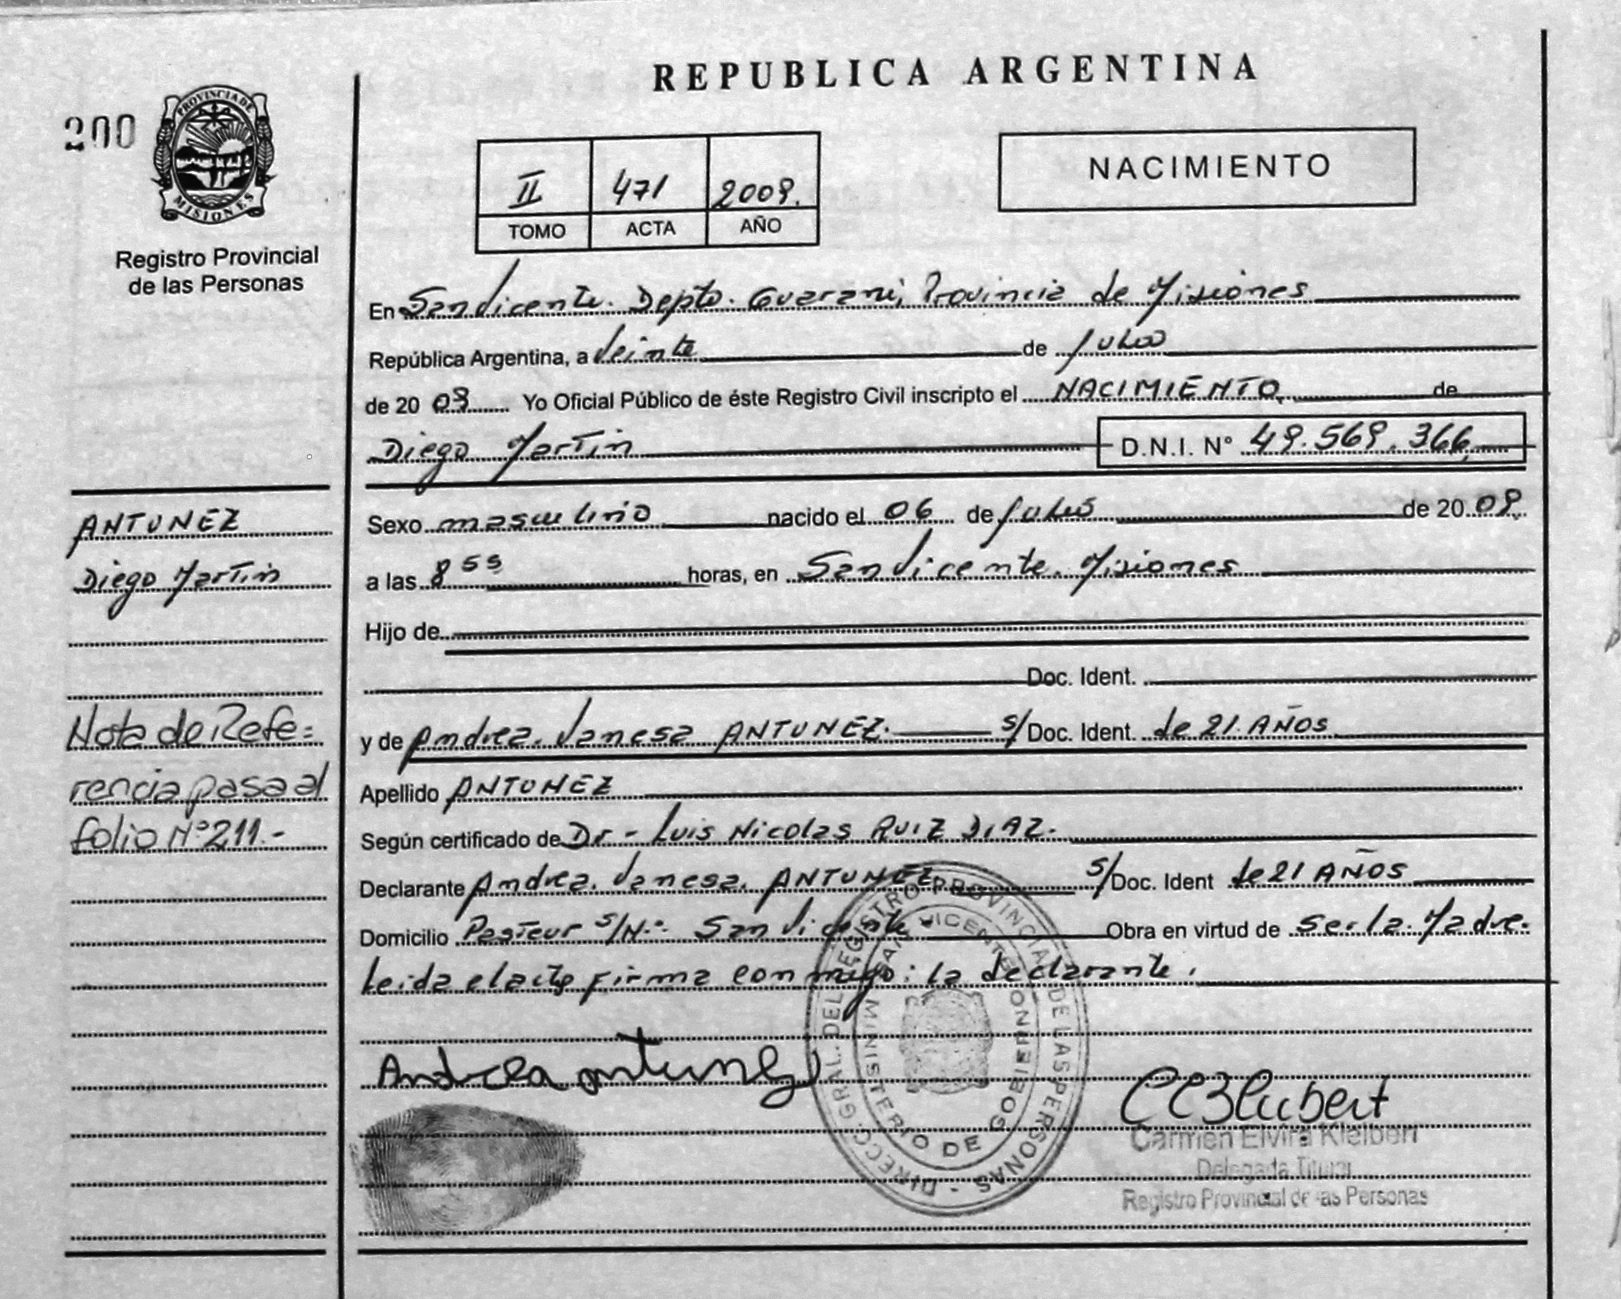 REPUBLICA ARGENTINA
200
PROVINCIA DE MISIONES
Registro Provincial
de las Personas
II 471 2009.
TOMO ACTA AÑO
NACIMIENTO
En San Vicente. Depto. Guarani, Provincia de Misiones
República Argentina, a Veinte de Julio
de 20 09 Yo Oficial Público de éste Registro Civil inscripto el NACIMIENTO de
Diego Martin D.N.I. N° 49.569.366
ANTUNEZ
Diego Martin
Sexo masculino nacido el 06 de Julio de 20 09
a las 8 55 horas, en San Vicente. Misiones
Hijo de
Doc. Ident.
y de Andrea Vanesa ANTUNEZ. s/Doc. Ident. de 21 AÑOS
Apellido ANTUNEZ
Según certificado de Dr - Luis Nicolas RUIZ DIAZ.
Declarante Andrea Vanesa ANTUNEZ s/Doc. Ident de 21 AÑOS
Domicilio Pasteur s/Nº San Vicente Obra en virtud de Ser la Madre.
Leida el acta firma con migo: la declarante.
Nota de Refe=
rencia pasa al
folio Nº 211.-
Andrea antunez
DIRECC. GRAL. DEL REGISTRO PROVINCIAL DE LAS PERSONAS
SAN VICENTE
MINISTERIO DE GOBIERNO
Carmen Elvira
Delegada Titular
Registro Provincial de las Personas